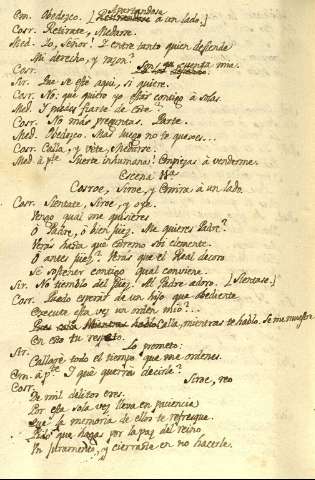 Apartandose
Em. Obedezco. [Retirandose a un lado.]
Cosr. Retirate, Medarse.
Med. Yo, Señor! I entre tanto quien defiende
Mi derecho, y razon?
Cosr. Son de cuenta mia.
Sir. Que se esté aqui, si quiere.
Cosr. No: que quiero yo estar contigo à solas.
Med. I puedes fiarte de Este?
Cosr. No más preguntas. Parte.
Med. Obedezco. Mas luego no te quexes...
Cosr. Calla, y vete, Medarse.
Med. à pte. Suerte inhumana! Empiezas à venderme.
Escena
Cosroe, Siroe, y Emira à un lado.
Cosr. Sientate, Siroe, y oye.
Vengo qual me quisieres
O Padre, ò bien juez. Me quieres Padre?
Verás hasta que estremo soi clemente.
O antes juez? Verás que el Real decoro
Sé sostener contigo qual conviene.
Sir. No tiemblo del Juez. Al Padre adoro. [Sientase.]
Cosr. Puedo esperar de un hijo que obediente
Execute esta vez un orden mio?...
Calla, mientras te hablo. Se me muestre
En eso tu respeto.
Sir. Lo prometo:
Callaré todo el tiempo que me ordenes.
Em. à pte. I qué querrá decirle?
Cosr. Siroe, reo
De mil delitos eres.
Por esta sola vez lleva en paciencia
Que la memoria de ellos te refresque.
Pido que hagas por la paz del reino
Un juramento, y cierrasla en no hacerle.